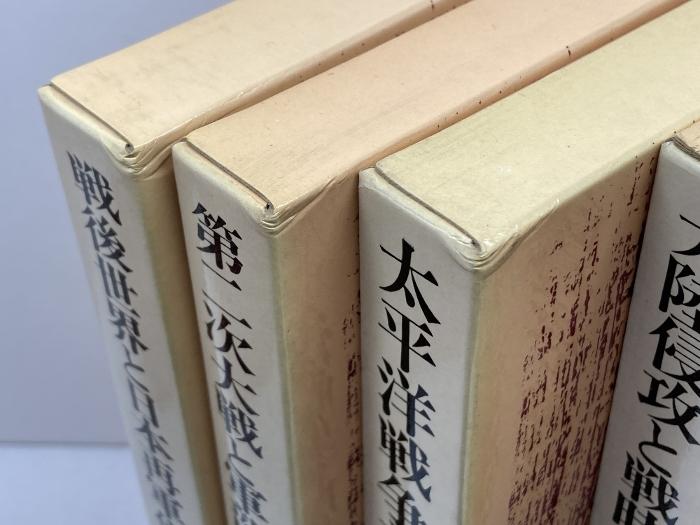 戦後世界と日本再軍
第二次大戦と軍
太平洋戦争
大陸侵攻と戦時